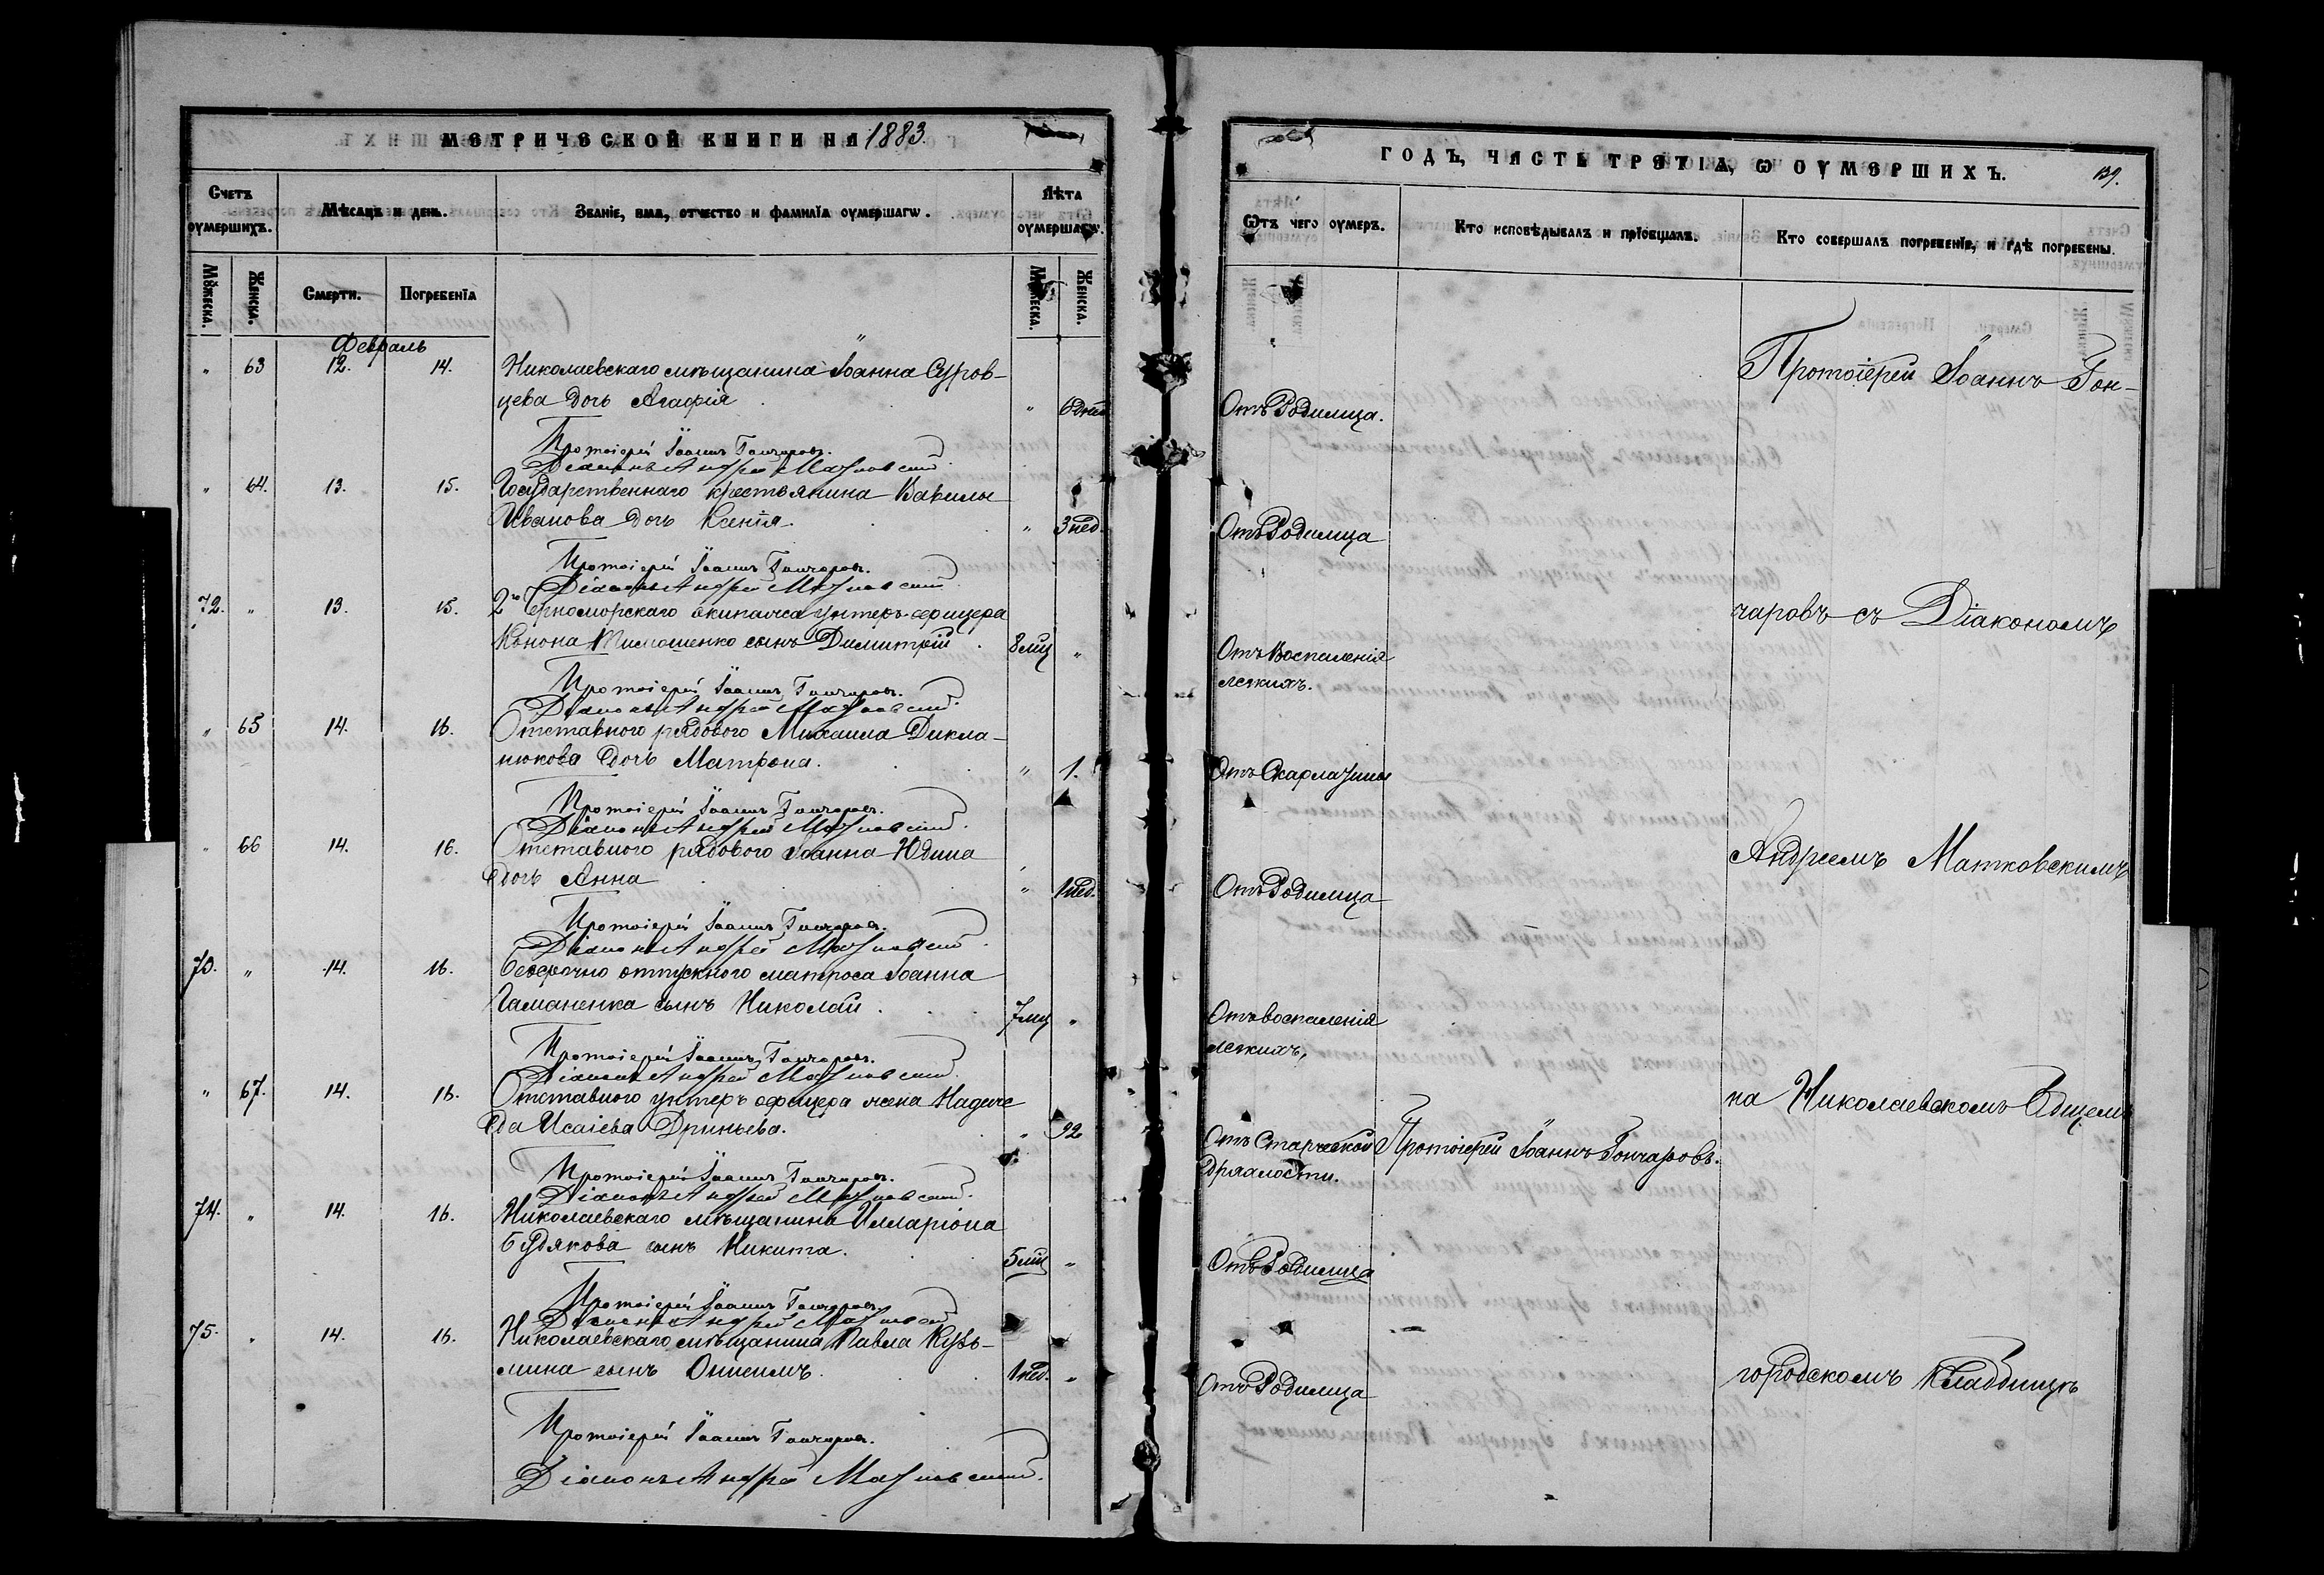 МЕТРИЧЕСКОЙ КНИГИ НА 1883.
Счетъ оумершихъ.
Мѣсяцъ и день.
Званіе, имя, отчество и фамилїа оумершагѡ.
Лѣта оумершагѡ.
Мꙋжеска.
Женска.
Смерти.
Погребенїа
Мꙋжеска.
Женска.
Февраль
" 63 12. 14. Николаевскаго мѣщанина Іоанна Суров-
цева дочь Агафія " 6 дней
Протоіерей Іоаннъ Гончаровъ.
Діаконъ Андрей Матковский.
" 64. 13. 15. Государственнаго крестьянина Вавилы
Иванова дочь Ксенія. " 3 нед.
Протоіерей Іоаннъ Гончаровъ.
Діаконъ Андрей Матковский.
72. " 13. 15. 2го Черноморскаго экипажа унтеръ-офицера
Конона Тимошенко сынъ Димитрій. 8 мц "
Протоіерей Іоаннъ Гончаровъ.
Діаконъ Андрей Матковский.
" 65 14. 16. Отставного рядового Михаила Дикла-
нюкова дочь Матрона. " 1.
Протоіерей Іоаннъ Гончаровъ.
Діаконъ Андрей Матковский.
" 66 14. 16. Отставного рядового Іоанна Юдина
дочь Анна " 1 нед.
Протоіерей Іоаннъ Гончаровъ.
Діаконъ Андрей Матковский.
73. " 14. 16. Безсрочно отпускного матроса Іоанна
Гаманенка сынъ Николай. 7 мц "
Протоіерей Іоаннъ Гончаровъ.
Діаконъ Андрей Матковский.
" 67. 14. 16. Отставного унтеръ офицера жена Надеже
да Исаіева Дриньева. " 92
Протоіерей Іоаннъ Гончаровъ.
Діаконъ Андрей Матковский.
74. " 14. 16. Николаевскаго мѣщанина Илларіона
Будякова сынъ Никита. 5 мц "
Протоіерей Іоаннъ Гончаровъ.
Діаконъ Андрей Матковский.
75. " 14. 16. Николаевскаго мѣщанина Павла Кузь-
мина сынъ Онисимъ. 1 нед. "
Протоіерей Іоаннъ Гончаровъ.
Діаконъ Андрей Матковский.
ГОДЪ, ЧАСТЬ ТРЕТІА, Ѡ ОУМЕРШИХЪ. 139.
Ѿтъ чего оумеръ.
Кто исповѣдывалъ и прїобщалъ.
Кто совершалъ погребенїе, и гдѣ погребены.
Отъ Родимца.
Отъ Родимца
Отъ Воспаленія
легкихъ.
Отъ Скарлатины
Отъ Родимца
Отъ воспаленія
легкихъ,
Отъ Старческой Протоіерей Іоаннъ Гончаровъ.
дряхлости.
Отъ Родимца
Отъ Родимца
Протоіерей Іоаннъ Гон-
чаровъ съ Діакономъ
Андреемъ Матковскимъ
на Николаевскомъ Общемъ
городскомъ кладбищѣ